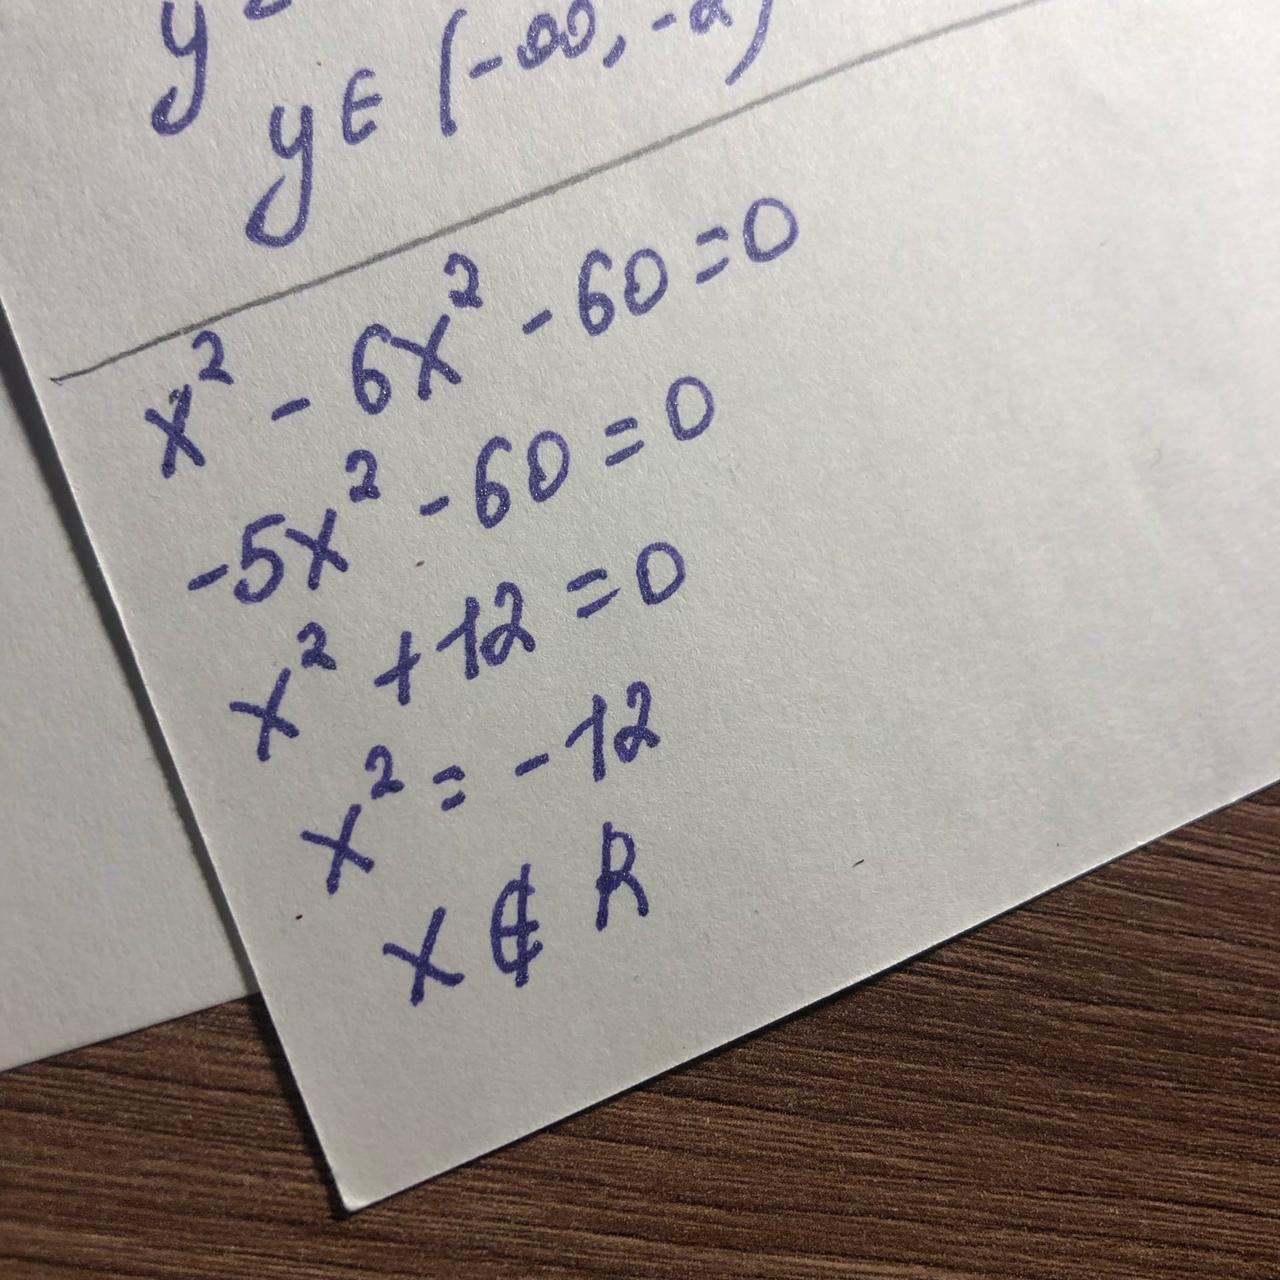 y
y ∈ (-∞, -2)
x² - 6x² - 60 = 0
-5x² - 60 = 0
x² + 12 = 0
x² = -12
x ∉ R